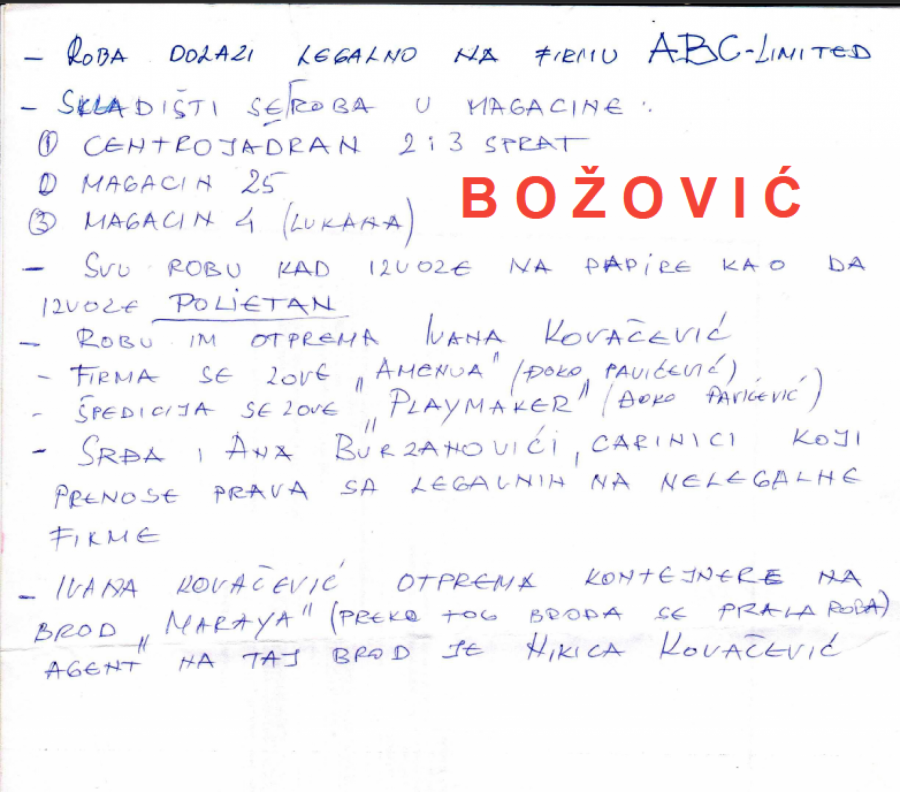 - ROBA DOLAZI LEGALNO NA FIRMU ABC-LIMITED
- SKLADIŠTI SE ROBA U MAGACINE:
① CENTROJADRAN 2 i 3 SPRAT
② MAGACIN 25
BOŽOVIĆ
③ MAGACIN 4 (LUKANA)
- SVU ROBU KAD IZVOZE NA PAPIRE KAO DA
IZVOZE POLIETAN
- ROBU IM OTPREMA IVANA KOVAČEVIĆ
- FIRMA SE ZOVE "AMENUA" (ĐOKO PAVIĆEVIĆ)
- ŠPEDICIJA SE ZOVE "PLAYMAKER" (ĐOKO PAVIĆEVIĆ)
- SRĐA I ANA BURZANOVIĆI, CARINICI KOJI
PRENOSE PRAVA SA LEGALNIH NA NELEGALNE
FIRME
- IVANA KOVAČEVIĆ OTPREMA KONTEJNERE NA
BROD "MARAYA" (PREKO TOG BRODA SE PRALA ROBA)
AGENT NA TAJ BROD JE NIKICA KOVAČEVIĆ